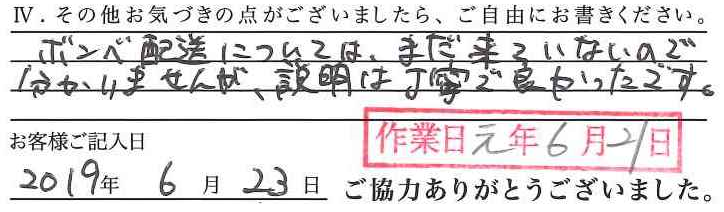 Ⅳ．その他お気づきの点がございましたら、ご自由にお書きください。
ボンベ配送については、まだ来ていないので
分かりませんが、説明は丁寧で良かったです。
作業日元年6月21日
お客様ご記入日
2019年 6月 23日 ご協力ありがとうございました。